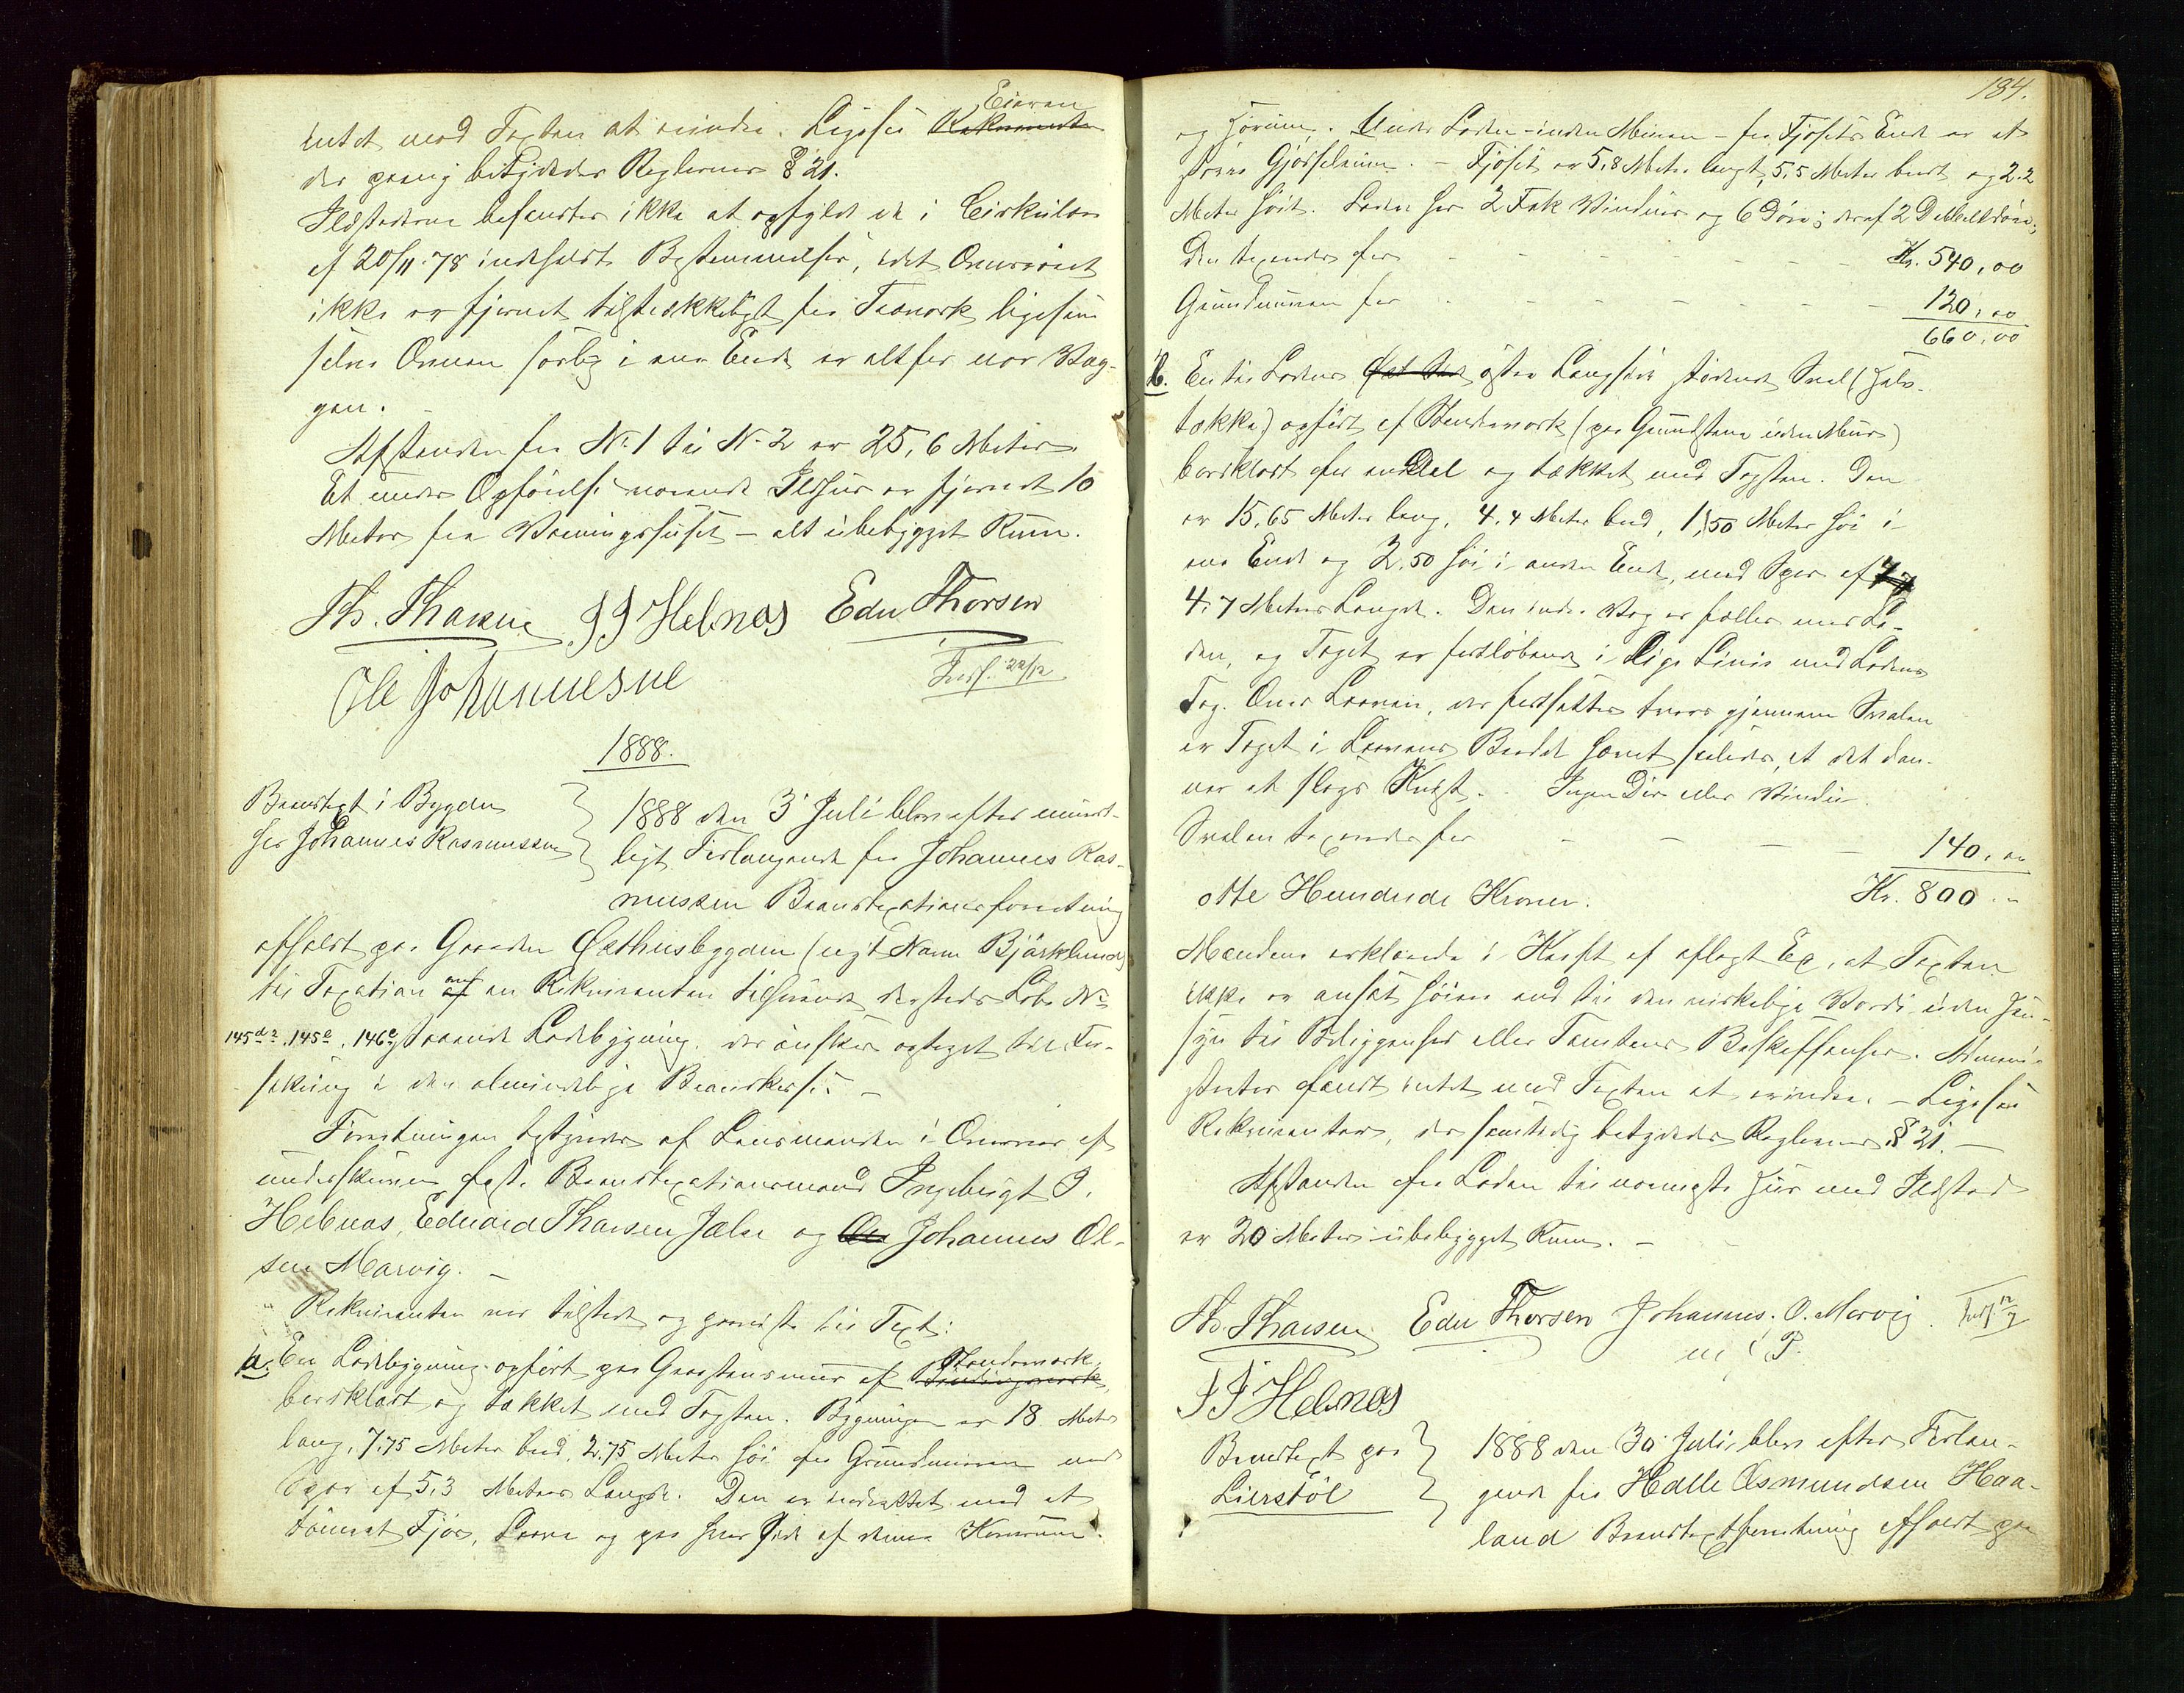 Eieren
intet mod Taxten at erindre. Ligesaa Rekvirenten
der gaves betydet Reglernes § 21.
Ildstederne befandtes ikke at opfylde de i Cirkulære
af 20/11 78 indeholdte Bestemmelser, idet Ovnsrøret
ikke er fjernet tilstrækkeligt fra Træværk ligesom
selve Ovnen særlig i ene Ende er altfor nær Væg-
gen.
Afstanden fra No 1 til No 2 er 25,6 Meter.
Et under Opførelse værende Ildhus er fjernet 10
Meter fra Vaaningshuset - alt ubebygget Rum.
Th. Thorsen I I Helnæs Edv Thorsen
Ole Johannesne
Indf. 22/12
1888.
Brandtaxt i Bygden
hos Johannes Rasmussen
1888 den 3 Juli blev efter mundt-
ligt Forlangende fra Johannes Ras-
mussen Brandtaxationsforretning
afholdt paa Gaarden Østhusbygden (nyt Navn Bjørklund)
til Taxation over af en Rekvirenten tilhørende dersteds Løbe No
145d2, 145e, 146c staaende Ladebygning, der ønskes optaget til For-
sikring i den almindelige Brandkasse. -
Forretningen bestyredes af Lensmanden i Overvær af
underskrevne faste Brandtaxationsmænd Ingebrigt I.
Helnæs, Edvard Thorsen Jælse og Ole Johannes Ol-
sen Marvig. -
Rekvirenten var tilstede og paaviste til Taxt:
a. En Ladebygning opført paa Graastensmur af Bindingsværk Stenderværk,
bordklædt og tækket med Tagsten. Bygningen er 18 Meter
lang, 7,75 Meter bred, 2,75 Meter høi fra Grundmuren med
Sper af 5,3 Meters Længde. Den er indrettet med et
tømret Fjøs, Laave og paa hver Side af denne Kornrum
184.
og Hørum. Under Laden - inden Muren - fra Fjøsets Ende er et
stort Gjødselrum. - Fjøset er 5,8 Meter langt, 5,5 Meter bredt og 2,2
Meter høit. Laden har 2 Fak Vinduer og 6 Døre; deraf 2 Dobbeltdøre;
Den taxeredes for - - - - - Kr. 540,00
Grundmuren for - - - - - 120,00
660,00
b. En til Ladens østre Langside stødende Sval (Halv-
tække) opført af Stenderværk (paa Grundstene uden Mur)
bordklædt for en Del og tækket med Tagsten. Den
er 15,65 Meter lang, 4,4 Meter bred, 1,50 Meter høi i
ene Ende og 2,50 høi i anden Ende, med Sper af
4,7 Meters Længde. Den indre Væg er fælles med La-
den, og Taget er fortløbende i lige Linie med Ladens
Tag. Over Laaven, der fortsættes tvers gjennem Svalen
er Taget i Laavens Bredde hævet saaledes, at det dan-
ner et slags Kvist. Ingen Dør eller Vindu.
Svalen taxeredes for - - - - 140,00
otte Hundrede Kroner. Kr. 800 -
Mændene erklærede i Kraft af aflagt Ed, at Taxten
ikke er ansat høiere end til den virkelige Værdi uden Hen-
syn til Beliggenhed eller Tomtens Beskaffenhed. Admini-
strator fandt intet mod Taxten at erindre. - Ligesaa
Rekvirenten, der samtidig betydedes Reglernes § 21. -
Afstanden fra Laden til nærmeste Hus med Ildsted
er 20 Meter ubebygget Rum. -
Th. Thorsen Edv Thorsen Johannes. O. Marvig. Indf. 12/7
m. P.
I I Helnæs
Brandtaxt paa
Lierstøl
1888 den 30 Juli blev efter Forlan-
gende fra Halle Osmundsen Haa-
land Brandtaxtforretning afholdt paa